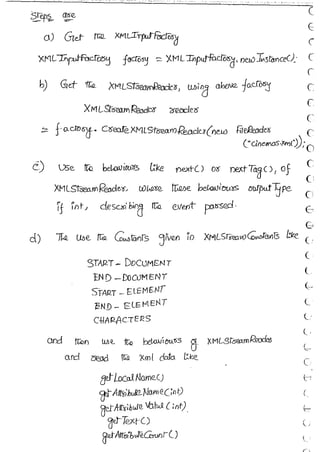 Steps are
a) Get the XMLInputFactory
XMLInputFactory factory = XMLInputFactory.newInstance();
b) Get the XMLStreamReader, using above factory
XMLStreamReader reader
= factory.createXMLStreamReader(new FileReader
("cinemas.xml"));
c) Use the behaviours like next() or nextTag(), of
XMLStreamReader, where these behaviours output Type
if int, describing the event parsed.
d) The use the Constants given in XMLStreamConstants like
START-DOCUMENT
END-DOCUMENT
START-ELEMENT
END-ELEMENT
CHARACTERS
and then use the behaviours of XMLStreamReader
and read the xml data like
getLocalName()
getAttributeName(int)
getAttribute Value(int)
getText()
getAttributeCount()